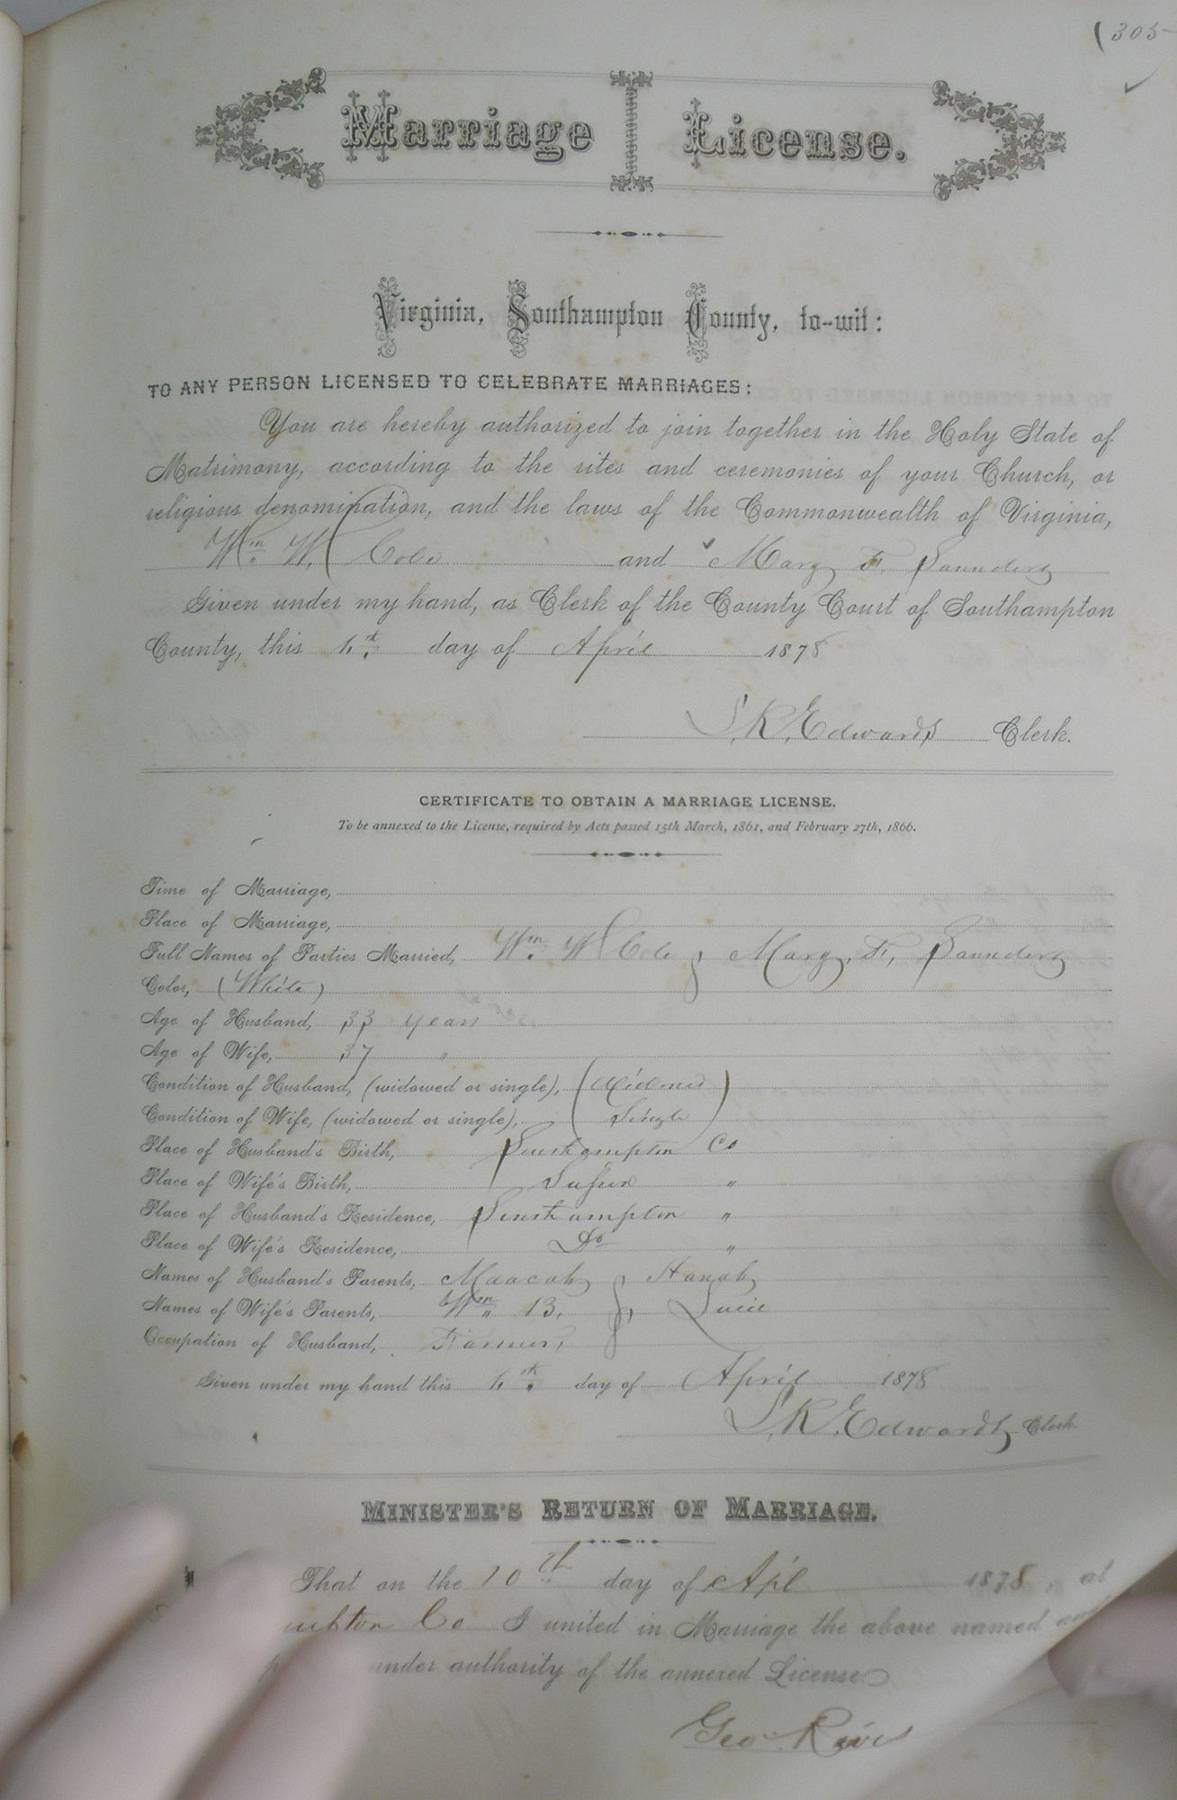 (305
Marriage License.
Virginia, Southampton County, to-wit:
TO ANY PERSON LICENSED TO CELEBRATE MARRIAGES:
You are hereby authorized to join together in the Holy State of
Matrimony, according to the rites and ceremonies of your Church, or
religious denomination, and the laws of the Commonwealth of Virginia,
Wm. W. Cobb and Mary F. Saunders
Given under my hand, as Clerk of the County Court of Southampton
County, this day of April 1878
S. R. Edwards Clerk.
CERTIFICATE TO OBTAIN A MARRIAGE LICENSE.
To be annexed to the License, required by Acts passed 15th March, 1861, and February 27th, 1866.
Time of Marriage,
Place of Marriage,
Full Names of Parties Married, Wm. W Cobb, Mary, F, Saunders
Color, (White)
Age of Husband, 33 years
Age of Wife, 37 "
Condition of Husband, (widowed or single), (Widowed)
Condition of Wife, (widowed or single), Single
Place of Husband's Birth, Southampton Co
Place of Wife's Birth, Sussex "
Place of Husband's Residence, Southampton "
Place of Wife's Residence, Do "
Names of Husband's Parents, Hanah
Names of Wife's Parents, Wm B., Lucie
Occupation of Husband, Farmer,
Given under my hand this day of April 1878
S. R. Edwards, Clerk
MINISTER'S RETURN OF MARRIAGE.
That on the 10th day of Apl 1878, at
Co I united in Marriage the above named and
under authority of the annexed License
Geo